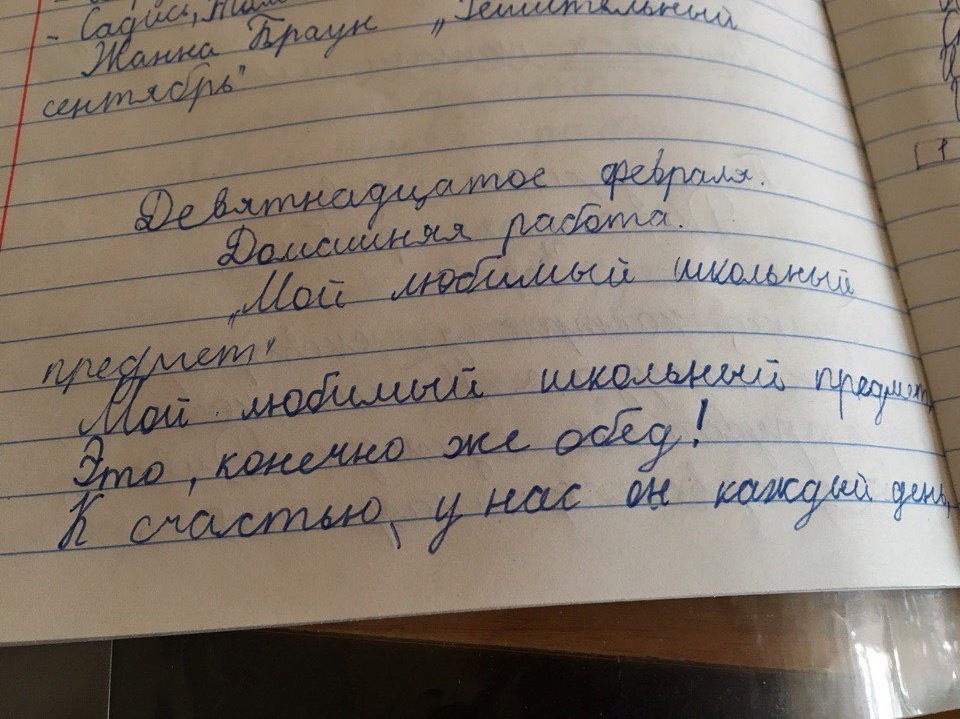 - Садись,
Жанна Браун „
сентябрь"
Девятнадцатое февраля.
Домашняя работа.
„Мой любимый школьный
предмет"
Мой любимый школьный предмет,
Это, конечно же обед!
К счастью, у нас он каждый день,